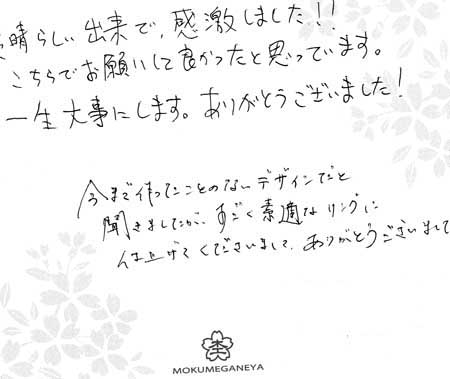 晴らしい出来で、感激しました!!
こちらでお願いして良かったと思っています。
一生大事にします。ありがとうございました!
今まで作ったことのないデザインだと
聞きましたが、すごく素適なリングに
仕上げてくださいまして、ありがとうございまして
MOKUMEGANEYA